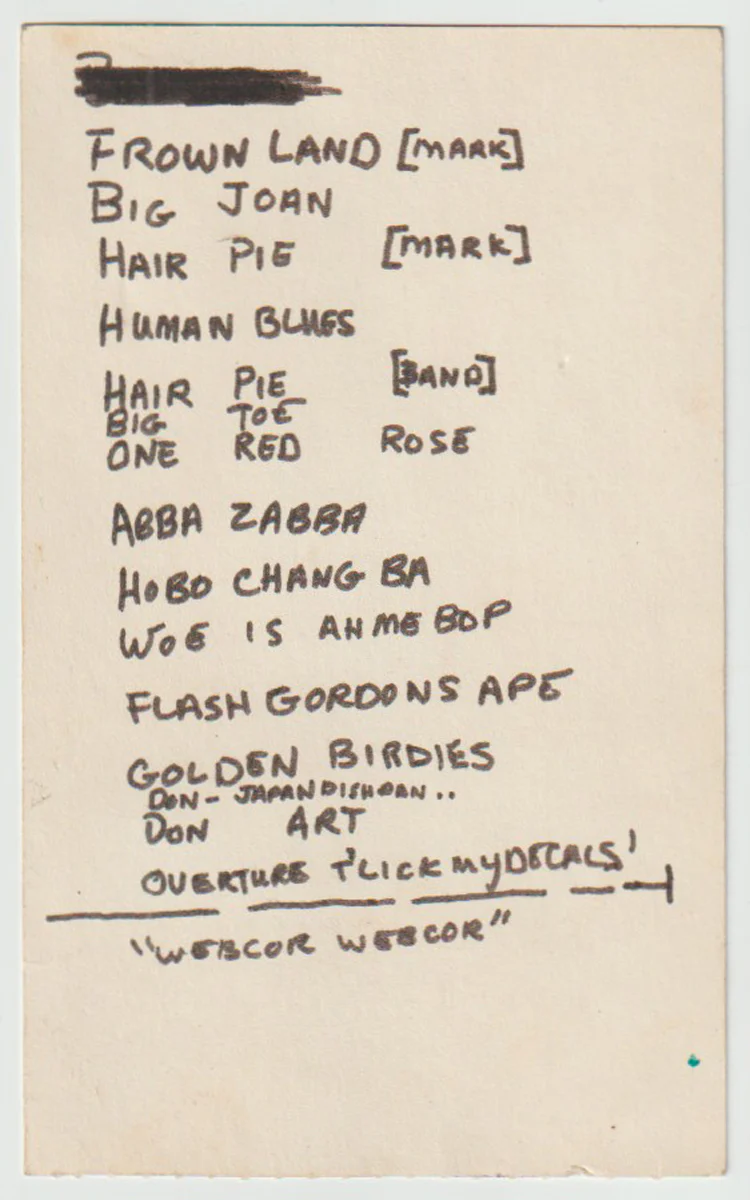 FROWN LAND [MARK]
BIG JOAN
HAIR PIE [MARK]
HUMAN BLUES
HAIR PIE [BAND]
BIG TOE
ONE RED ROSE
ABBA ZABBA
HOBO CHANG BA
WOE IS AH ME BOP
FLASH GORDONS APE
GOLDEN BIRDIES
DON - JAPAN DISHPAN ..
DON ART
OVERTURE T'LICK MY DECALS'
"WEBCOR WEBCOR"